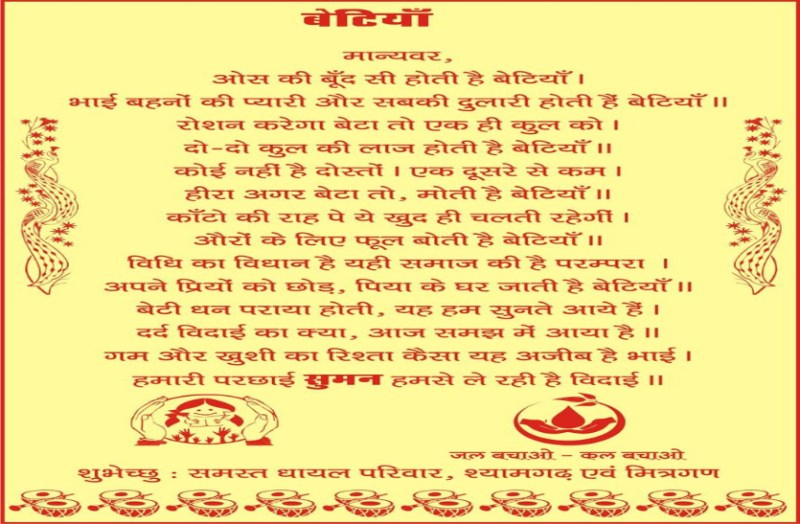 बेटियाँ
मान्यवर,
ओस की बूँद सी होती है बेटियाँ ।
भाई बहनों की प्यारी और सबकी दुलारी होती हैं बेटियाँ ।।
रोशन करेगा बेटा तो एक ही कुल को ।
दो-दो कुल की लाज होती है बेटियाँ ।।
कोई नहीं है दोस्तों । एक दूसरे से कम ।
हीरा अगर बेटा तो, मोती है बेटियाँ ।।
काँटो की राह पे ये खुद ही चलती रहेगीं ।
औरों के लिए फूल बोती है बेटियाँ ।।
विधि का विधान है यही समाज की है परम्परा ।
अपने प्रियों को छोड़, पिया के घर जाती है बेटियाँ ।।
बेटी धन पराया होती, यह हम सुनते आये हैं ।
दर्द विदाई का क्या, आज समझ में आया है ।।
गम और खुशी का रिश्ता कैसा यह अजीब है भाई ।
हमारी परछाई सुमन हमसे ले रही है विदाई ।।
जल बचाओ - कल बचाओ
शुभेच्छु : समस्त धायल परिवार, श्यामगढ़ एवं मित्रगण